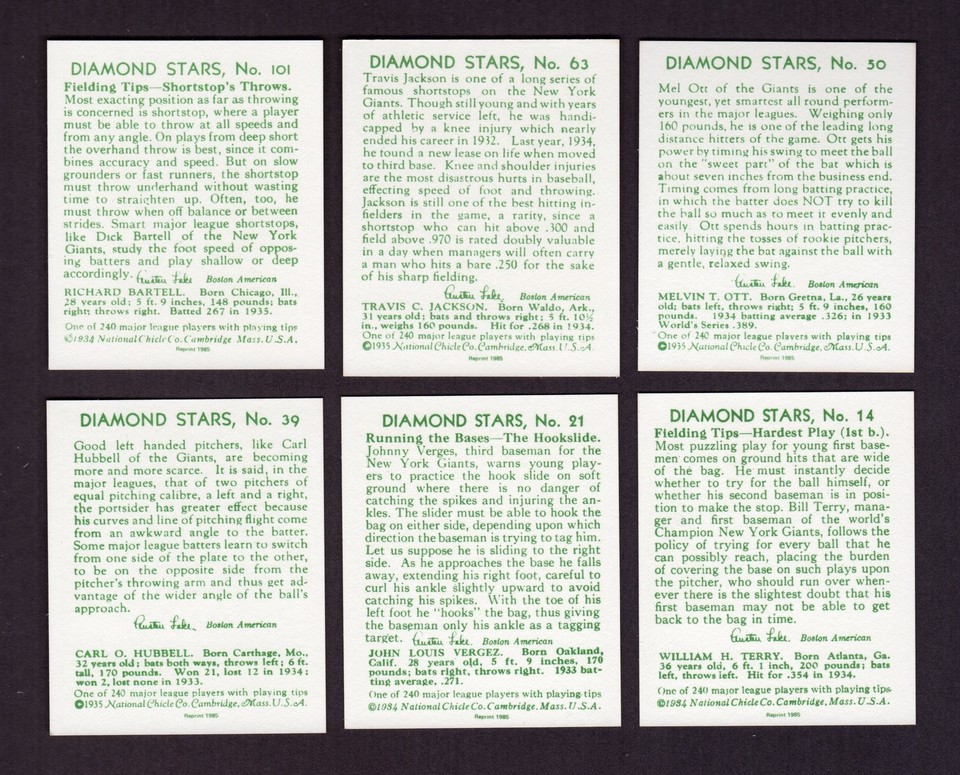 DIAMOND STARS, No. 101
Fielding Tips—Shortstop's Throws.
Most exacting position as far as throwing
is concerned is shortstop, where a player
must be able to throw at all speeds and
from any angle. On plays from deep short
the overhand throw is best, since it com-
bines accuracy and speed. But on slow
grounders or fast runners, the shortstop
must throw underhand without wasting
time to straighten up. Often, too, he
must throw when off balance or between
strides. Smart major league shortstops,
like Dick Bartell of the New York
Giants, study the foot speed of oppos-
ing batters and play shallow or deep
accordingly. Austen Lake Boston American
RICHARD BARTELL. Born Chicago, Ill.,
28 years old; 5 ft. 9 inches, 148 pounds; bats
right; throws right. Batted 267 in 1935.
One of 240 major league players with playing tips
©1934 National Chicle Co. Cambridge Mass. U.S.A.
Reprint 1985
DIAMOND STARS, No. 63
Travis Jackson is one of a long series of
famous shortstops on the New York
Giants. Though still young and with years
of athletic service left, he was handi-
capped by a knee injury which nearly
ended his career in 1932. Last year, 1934,
he found a new lease on life when moved
to third base. Knee and shoulder injuries
are the most disastrous hurts in baseball,
effecting speed of foot and throwing.
Jackson is still one of the best hitting in-
fielders in the game, a rarity, since a
shortstop who can hit above .300 and
field above .970 is rated doubly valuable
in a day when managers will often carry
a man who hits a bare .250 for the sake
of his sharp fielding.
Austen Lake Boston American
TRAVIS C. JACKSON. Born Waldo, Ark.,
31 years old; bats and throws right; 5 ft. 10½
in., weighs 160 pounds. Hit for .268 in 1934.
One of 240 major league players with playing tips
©1935 National Chicle Co. Cambridge, Mass. U.S.A.
Reprint 1985
DIAMOND STARS, No. 50
Mel Ott of the Giants is one of the
youngest, yet smartest all round perform-
ers in the major leagues. Weighing only
160 pounds, he is one of the leading long
distance hitters of the game. Ott gets his
power by timing his swing to meet the ball
on the "sweet part" of the bat which is
about seven inches from the business end.
Timing comes from long batting practice,
in which the batter does NOT try to kill
the ball so much as to meet it evenly and
easily. Ott spends hours in batting prac-
tice, hitting the tosses of rookie pitchers,
merely laying the bat against the ball with
a gentle, relaxed swing.
Austen Lake Boston American
MELVIN T. OTT. Born Gretna, La., 26 years
old; bats left, throws right; 5 ft. 9 inches, 160
pounds. 1934 batting average .326; in 1933
World's Series .389.
One of 240 major league players with playing tips
©1935 National Chicle Co. Cambridge, Mass. U.S.A.
Reprint 1985
DIAMOND STARS, No. 39
Good left handed pitchers, like Carl
Hubbell of the Giants, are becoming
more and more scarce. It is said, in the
major leagues, that of two pitchers of
equal pitching calibre, a left and a right,
the portsider has greater effect because
his curves and line of pitching flight come
from an awkward angle to the batter.
Some major league batters learn to switch
from one side of the plate to the other,
to be on the opposite side from the
pitcher's throwing arm and thus get ad-
vantage of the wider angle of the ball's
approach.
Austen Lake Boston American
CARL O. HUBBELL. Born Carthage, Mo.,
32 years old; bats both ways, throws left; 6 ft.
tall, 170 pounds. Won 21, lost 12 in 1934;
won 2, lost none in 1933.
One of 240 major league players with playing tips
©1935 National Chicle Co. Cambridge, Mass. U.S.A.
Reprint 1985
DIAMOND STARS, No. 21
Running the Bases—The Hookslide.
Johnny Verges, third baseman for the
New York Giants, warns young play-
ers to practice the hook slide on soft
ground where there is no danger of
catching the spikes and injuring the an-
kles. The slider must be able to hook the
bag on either side, depending upon which
direction the baseman is trying to tag him.
Let us suppose he is sliding to the right
side. As he approaches the base he falls
away, extending his right foot, careful to
curl his ankle slightly upward to avoid
catching his spikes. With the toe of his
left foot he "hooks" the bag, thus giving
the baseman only his ankle as a tagging
target. Austen Lake Boston American
JOHN LOUIS VERGEZ. Born Oakland,
Calif. 28 years old, 5 ft. 9 inches, 170
pounds; bats right, throws right. 1933 bat-
ting average, .271.
One of 240 major league players with playing tips
©1934 National Chicle Co. Cambridge, Mass. U.S.A.
Reprint 1985
DIAMOND STARS, No. 14
Fielding Tips—Hardest Play (1st b.).
Most puzzling play for young first base-
men comes on ground hits that are wide
of the bag. He must instantly decide
whether to try for the ball himself, or
whether his second baseman is in posi-
tion to make the stop. Bill Terry, mana-
ger and first baseman of the world's
Champion New York Giants, follows the
policy of trying for every ball that he
can possibly reach, placing the burden
of covering the base on such plays upon
the pitcher, who should run over when-
ever there is the slightest doubt that his
first baseman may not be able to get
back to the bag in time.
Austen Lake Boston American
WILLIAM H. TERRY. Born Atlanta, Ga.
36 years old, 6 ft. 1 inch, 200 pounds; bats
left, throws left. Hit for .354 in 1934.
One of 240 major league players with playing tips
©1934 National Chicle Co. Cambridge, Mass. U.S.A.
Reprint 1985